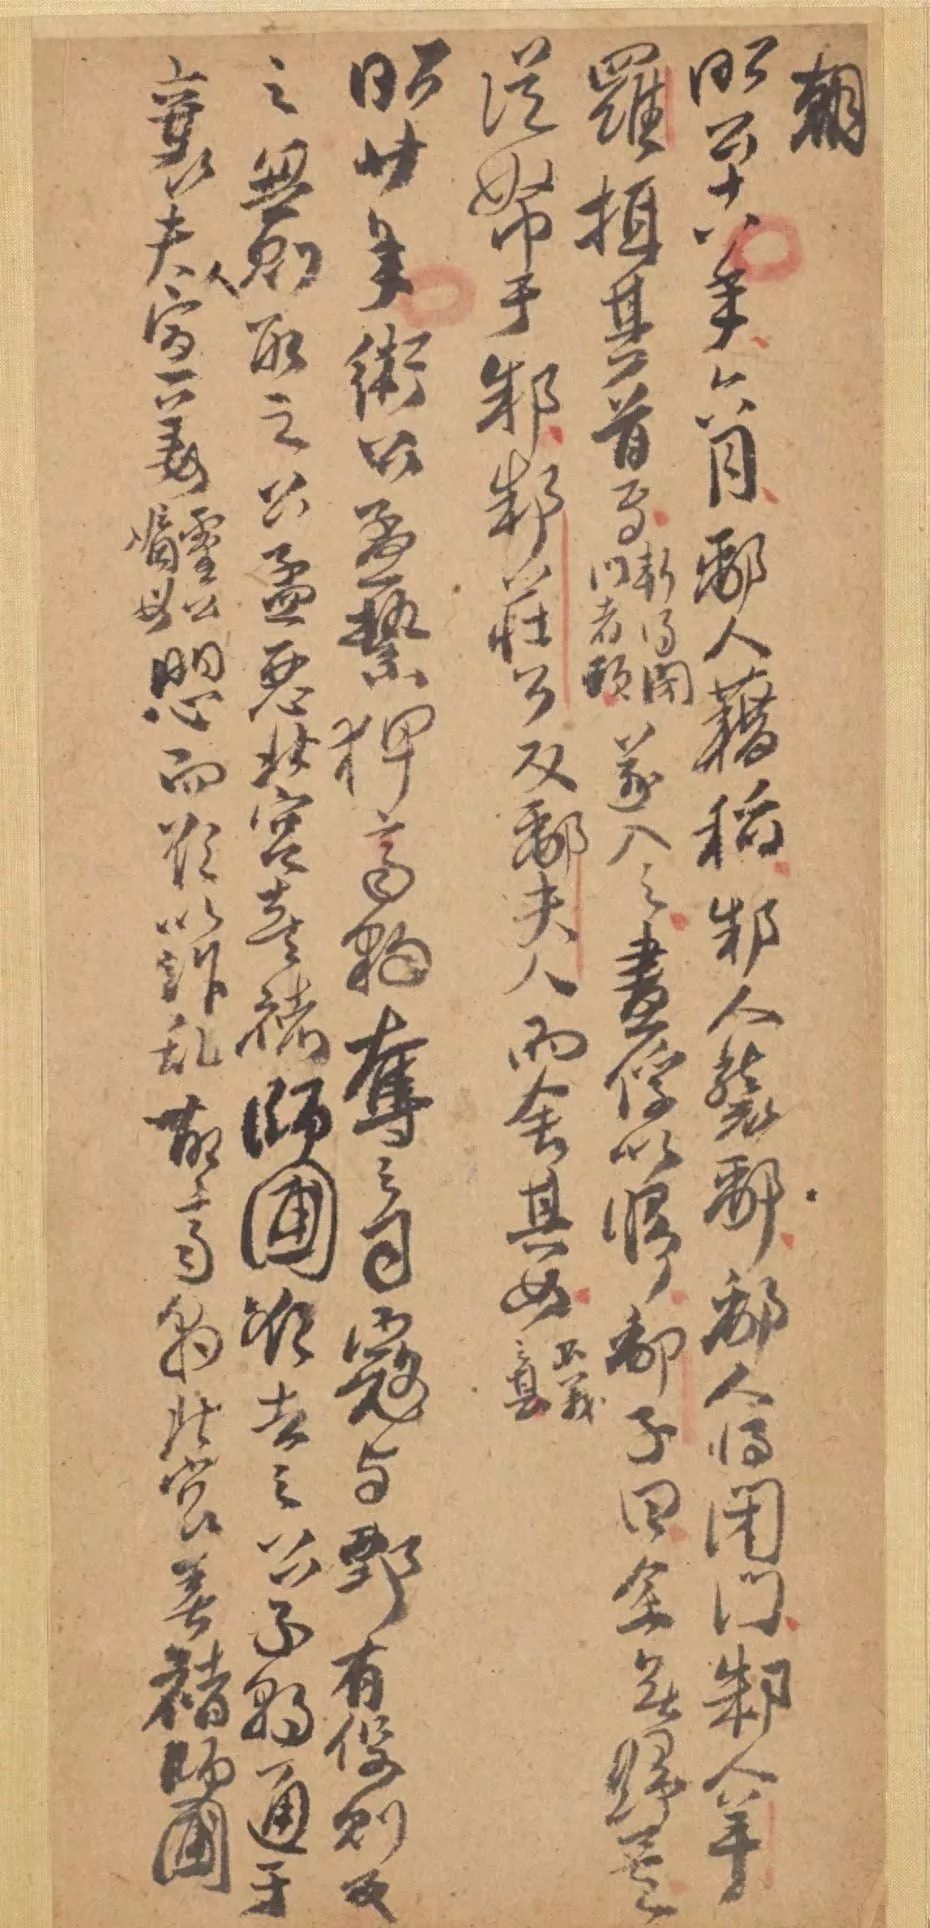 朝
昭公十八年六月鄅人藉稻邾人襲鄅鄅人將閉門邾人羊
羅攝其首至斬得閉門者頭遂入之盡俘以歸鄅子曰余無歸矣
從帑于邾邾莊公反鄅夫人而舍其女
昭廿年衛公孟縶狎齊豹奪之司寇与鄄有役則反
之無則取之公孟惡北宮喜褚師圃欲去之公子朝通于
襄夫人宣姜靈公嫡母懼而欲以作乱故齊豹北宮喜褚師圃